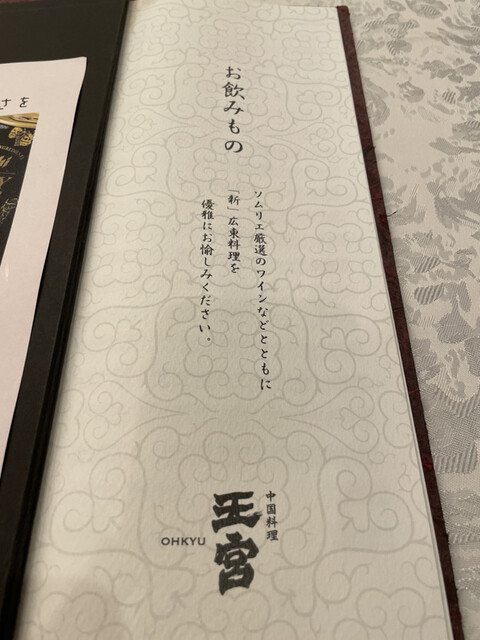 お飲みもの
ソムリエ厳選のワインなどとともに
「新」広東料理を
優雅にお愉しみください。
中国料理
王宮
OHKYU
さを